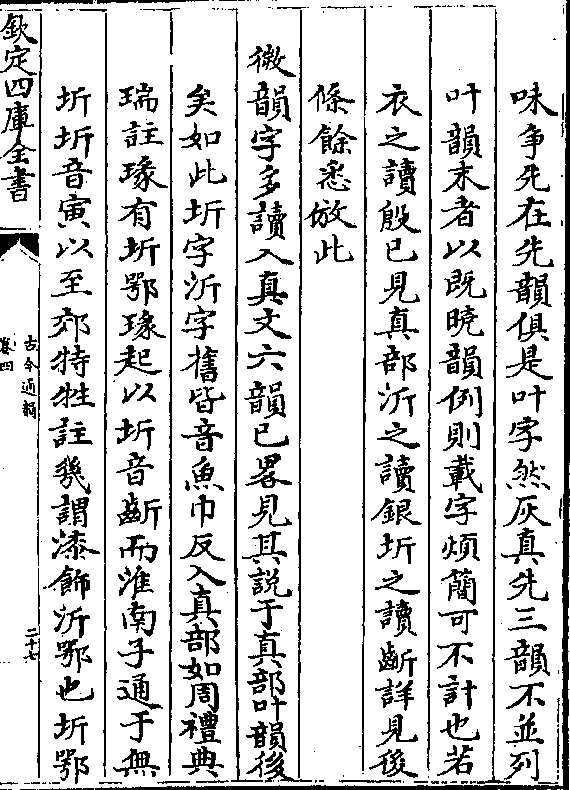 味争先在先韻俱是叶字然灰真先三韻不並列
叶韻末者以既暁韻例則載字煩簡可不計也若
衣之讀殷已見真部沂之讀銀圻之讀齗詳見後
條餘悉倣此
微韻字多讀入真文六韻已畧見其説于真部叶韻後
矣如此圻字沂字舊皆音魚巾反入真部如周禮典
瑞註瑑有圻鄂瑑起以圻音齗而淮南子通于無
圻圻音寅以至郊特牲註幾謂漆飾沂鄂也圻鄂
欽定四庫全書
古今通韻
卷四
二十七